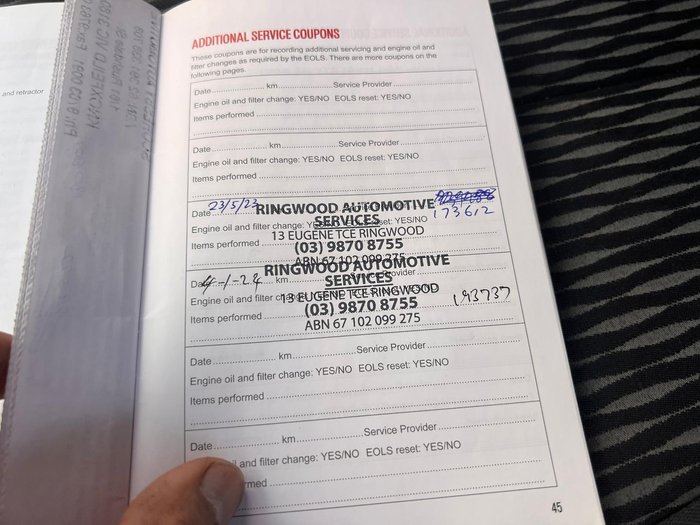 and retractor
ADDITIONAL SERVICE COUPONS
These coupons are for recording additional servicing and engine oil and
filter changes as required by the EOLS. There are more coupons on the
following pages.
Date km Service Provider
Engine oil and filter change: YES/NO EOLS reset: YES/NO
Items performed
Date km Service Provider
Engine oil and filter change: YES/NO EOLS reset: YES/NO
Items performed
Date 23/5/23
RINGWOOD AUTOMOTIVE
SERVICES
173612
Engine oil and filter change: YES/NO EOLS reset: YES/NO
13 EUGENE TCE RINGWOOD
Items performed
(03) 9870 8755
ABN 67 102 099 275
RINGWOOD AUTOMOTIVE
Date 4-1-24
SERVICES
Engine oil and filter
13 EUGENE TCE RINGWOOD
193737
Items performed
(03) 9870 8755
ABN 67 102 099 275
Date km Service Provider
Engine oil and filter change: YES/NO EOLS reset: YES/NO
Items performed
Date km Service Provider
and filter change: YES/NO EOLS reset: YES/NO
45